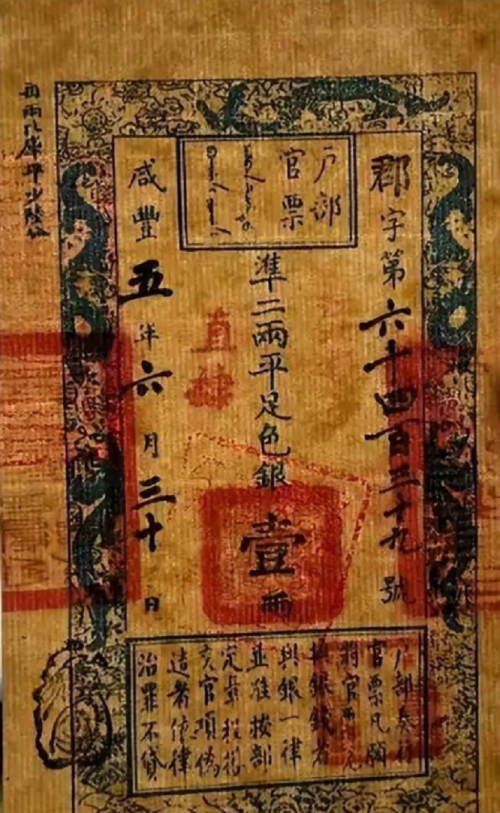 戶部
官票
郡字第六千四百三十九號
準二兩平足色銀壹兩
咸豐五年六月三十日
戶部奏行
官票凡願
將官票兌
換銀錢者
與銀一律
並准按部
定章程搭
交官項偽
造者依律
治罪不貸
每兩比庫平少陸分